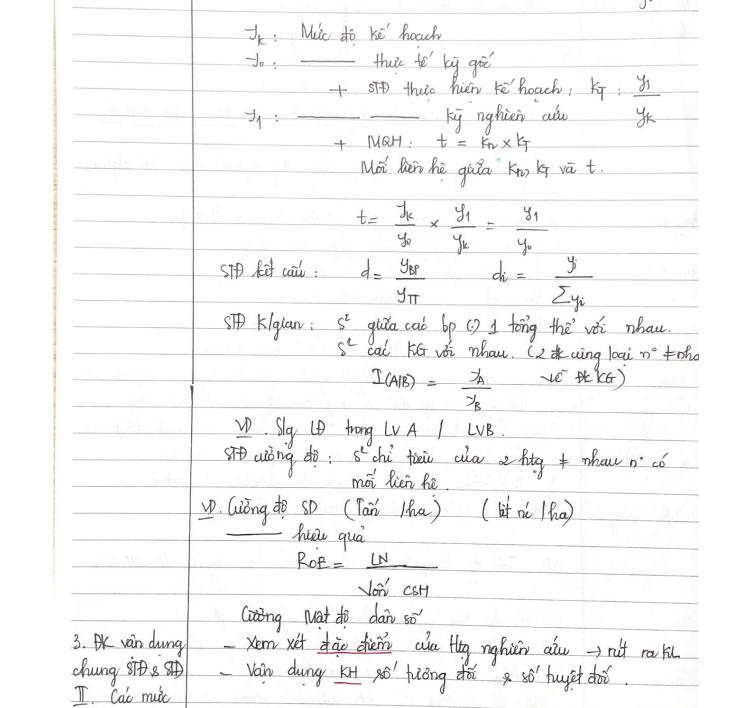 y_k : Mức độ kế hoạch
y_0 : —— thực tế kỳ gốc
+ STĐ thực hiện kế hoạch : K_T : y_1 / y_K
y_1 : —— —— kỳ nghiên cứu
+ MQH : t = K_n × K_T
Mối liên hệ giữa K_n, K_T và t.
t = y_k / y_0 × y_1 / y_k = y_1 / y_0
STĐ kết cấu : d = y_BP / y_TT d_i = y_i / Σy_i
STĐ K/gian : s² giữa các bp (:) 1 tổng thể với nhau.
s² các KG với nhau. (2 cùng loại n° ≠ nha
I(A/B) = y_A / y_B về ĐK KG)
VD. Slg LĐ trong LV A / LVB.
STĐ cường độ : s² chỉ tiêu của 2 htg ≠ nhau n° có
mối liên hệ.
VD. Cường độ SD (Tấn /ha) ( /ha)
—— hiệu quả
ROE = LN / Vốn CSH
Cường mật độ dân số
3. ĐK vận dụng – Xem xét đặc điểm của Htg nghiên cứu → rút ra KL
chung STĐ & STĐ – Vận dụng KH số tương đối & số tuyệt đối.
II. Các mức